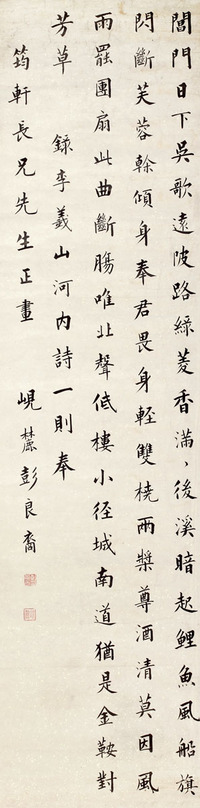 閶門日下吳歌遠陂路綠菱香滿、後溪暗起鯉魚風船旗
閃斷芙蓉幹傾身奉君畏身輕雙橈兩槳尊酒清莫因風
雨罷團扇此曲斷腸唯北聲低樓小徑城南道猶是金鞍對
芳草　錄李義山河內詩一則奉
筠軒長兄先生正畫　峴麓彭良裔